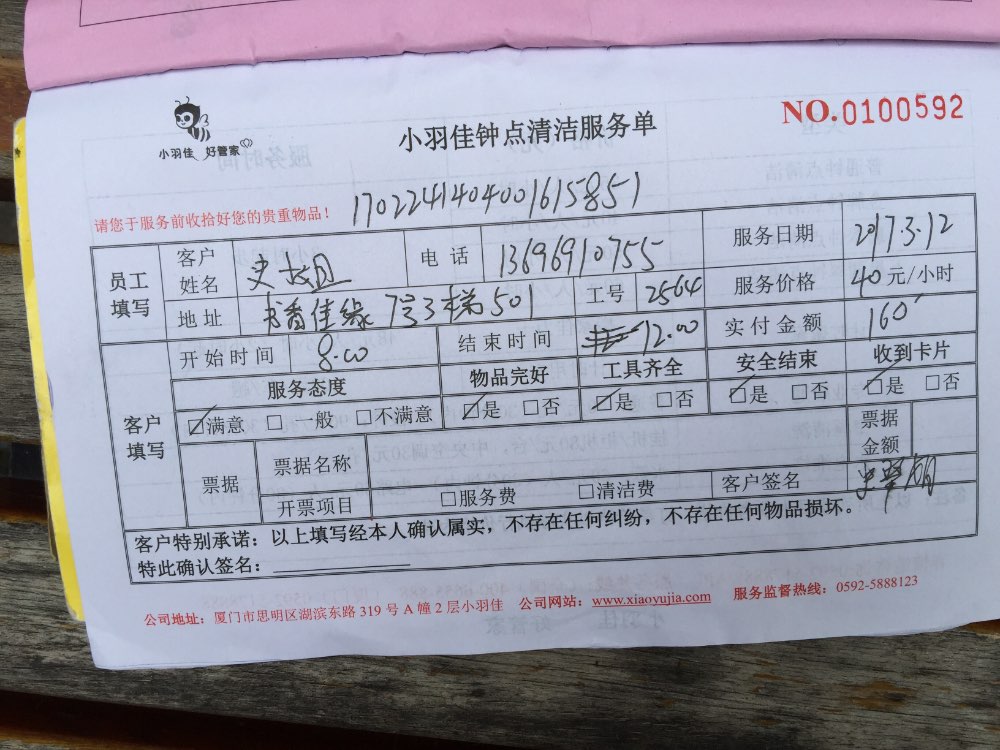 小羽佳 好管家
小羽佳钟点清洁服务单
NO.0100592
请您于服务前收拾好您的贵重物品！
1702241404001615851
员工填写 客户姓名 史 电话 13696910755 服务日期 2017.3.12
地址 书香佳缘 7号3梯501 工号 2564 服务价格 40元/小时
客户填写 开始时间 8.00 结束时间 12.00 实付金额 160
服务态度 物品完好 工具齐全 安全结束 收到卡片
☑满意 □一般 □不满意 ☑是 □否 ☑是 □否 ☑是 □否 ☑是 □否
票据 票据名称 票据金额
开票项目 □服务费 □清洁费 客户签名 史
客户特别承诺：以上填写经本人确认属实，不存在任何纠纷，不存在任何物品损坏。
特此确认签名：
公司地址：厦门市思明区湖滨东路 319 号 A 幢 2 层小羽佳 公司网站：www.xiaoyujia.com 服务监督热线：0592-5888123